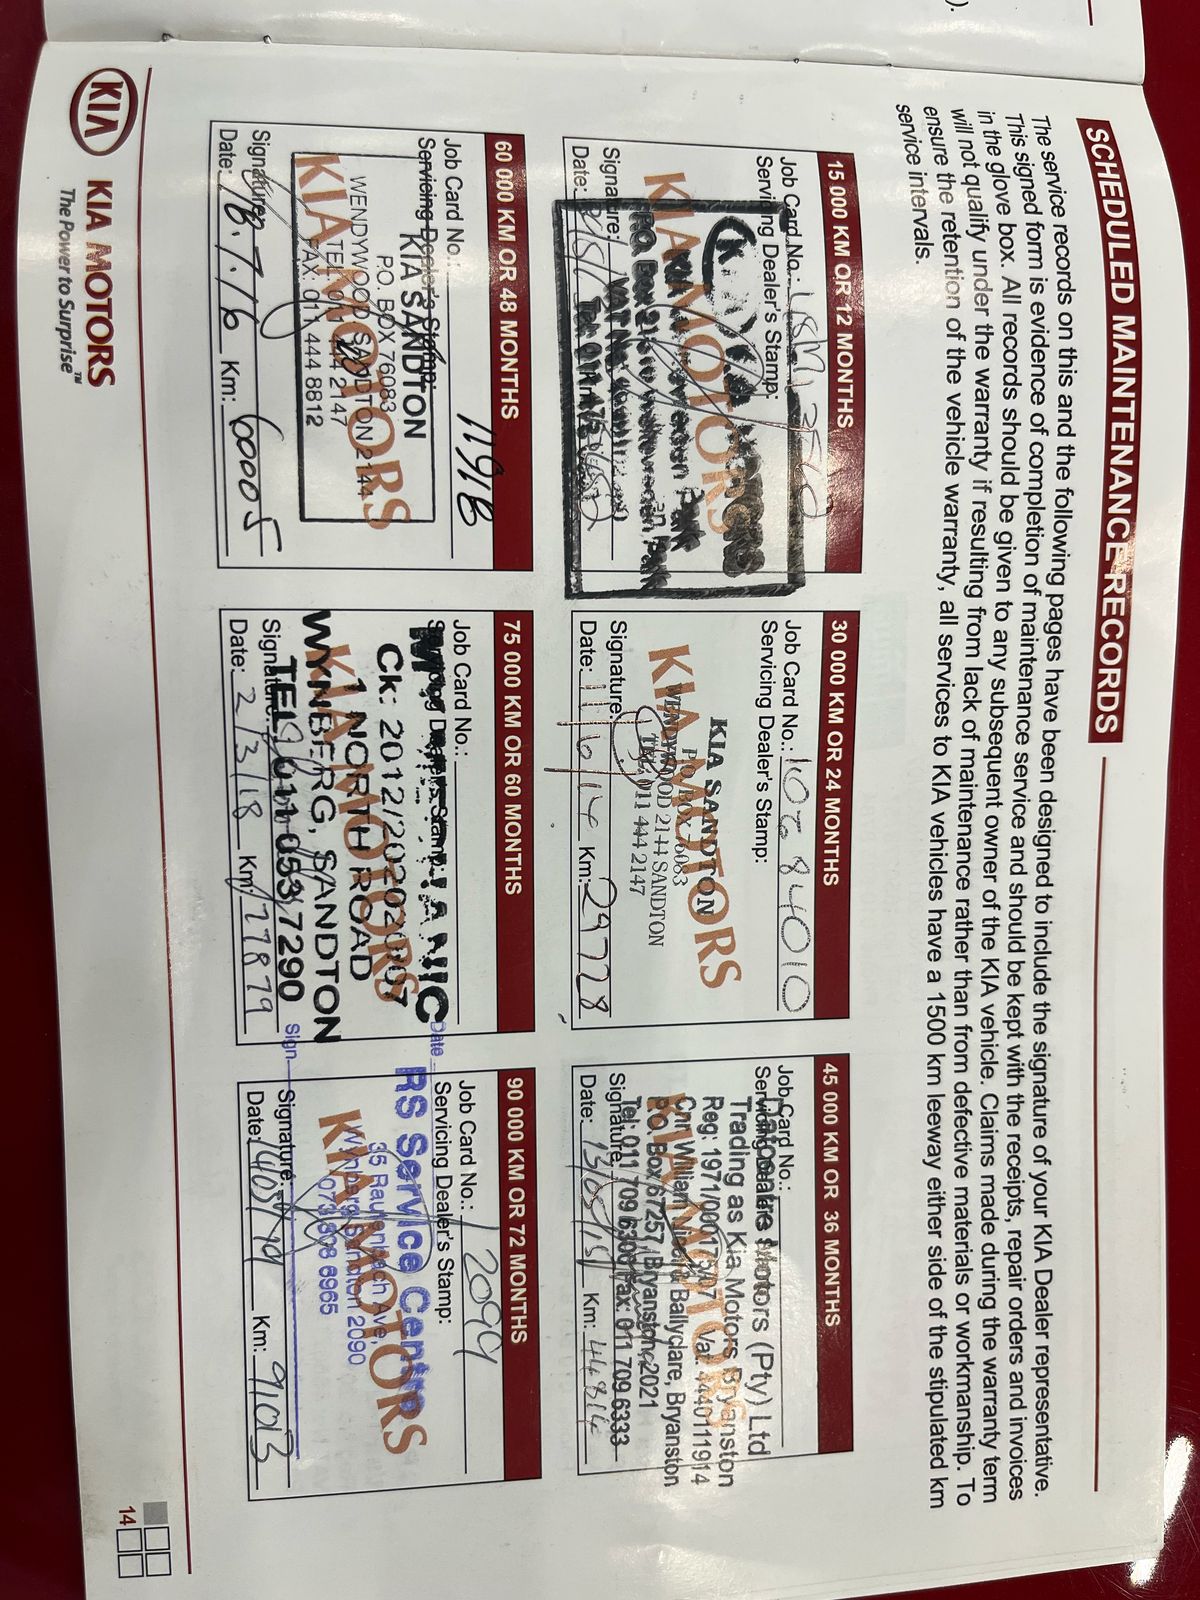 ).
SCHEDULED MAINTENANCE RECORDS
The service records on this and the following pages have been designed to include the signature of your KIA Dealer representative.
This signed form is evidence of completion of maintenance service and should be kept with the receipts, repair orders and invoices
in the glove box. All records should be given to any subsequent owner of the KIA vehicle. Claims made during the warranty term
will not qualify under the warranty if resulting from lack of maintenance rather than from defective materials or workmanship. To
ensure the retention of the vehicle warranty, all services to KIA vehicles have a 1500 km leeway either side of the stipulated km
service intervals.
15 000 KM OR 12 MONTHS
Job Card No.:
Servicing Dealer's Stamp:
KIA MOTORS
Signature:
Date:
30 000 KM OR 24 MONTHS
Job Card No.:
Servicing Dealer's Stamp:
KIA MOTORS
KIA SANDTON
PO BOX 76083
WENDYWOOD 2144 SANDTON
TEL: 011 444 2147
Signature:
Date: 11/6/14 Km: 29728
45 000 KM OR 36 MONTHS
Job Card No.:
Servicing Dealer's Stamp:
KIA MOTORS
Motors (Pty) Ltd
Trading as Kia Motors Bryanston
Reg: 1971/000173/07 Vat: 4440111914
Cnr William Nicol & Ballyclare, Bryanston
P.O. Box 67257, Bryanston, 2021
Tel: 011 709 6300 Fax: 011 709 6333
Signature:
Date: 13/05/15 Km: 44814
60 000 KM OR 48 MONTHS
Job Card No.: 11918
Servicing Dealer's Stamp:
KIA MOTORS
KIA SANDTON
P.O. BOX 76083
WENDYWOOD SANDTON 2144
TEL: 011 444 2147
FAX: 011 444 8812
Signature:
Date: 18.7.16 Km: 60005
75 000 KM OR 60 MONTHS
Job Card No.:
Servicing Dealer's Stamp:
KIA MOTORS
1 NORTH ROAD
WYNBERG, SANDTON
TEL: 011 053 7290
Signature:
Date: 2/3/18 Km: 77879
90 000 KM OR 72 MONTHS
Job Card No.: 12099
Servicing Dealer's Stamp:
KIA MOTORS
Date
RS Service Centre
35 Rautenbach Ave,
Wynberg Sandton 2090
073 808 6965
Sign
Signature:
Date: 14/05/19 Km: 91013
KIA KIA MOTORS
The Power to Surprise™
14